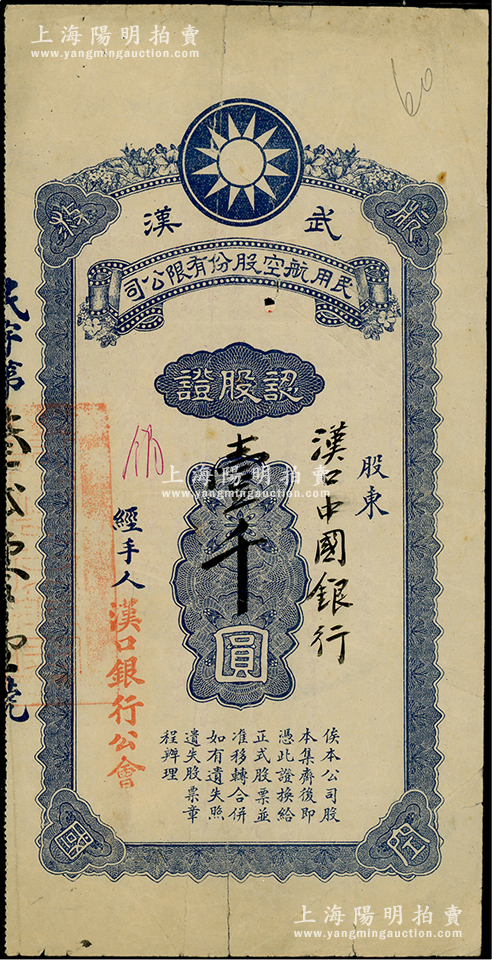 上海陽明拍賣
www.yangmingauction.com
60
漢武
司公限有份股空航用民
證股認
股東
漢口中國銀行
壹千
圓
經手人
漢口銀行公會
俟本公司股
本集齊後即
憑此證換給
正式股票並
准移轉合併
如有遺失照
遺失股票章
程辦理
上海陽明拍賣
www.yangmingauction.com
上海陽明拍賣
www.yangmingauction.com